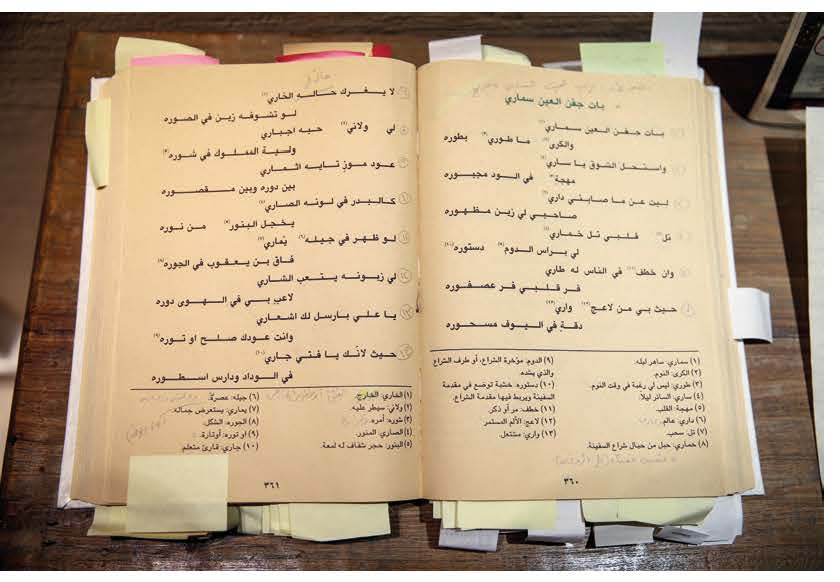 بات جفن العين سماري
بات جفن العين سماري(١)
والكرى(٢) ما طوري(٣) بطوره
واستحل الشوق يا ساري(٤)
مهجة(٥) في الود مجبوره
ليت عن ما صابني داري(٦)
صاحبي لي زين مظهوره
تل(٧) قلبي تل خماري(٨)
لي براس الدوم(٩) دستوره(١٠)
وان خطف(١١) في الناس له طاري
فر قلبي فر عصفوره
حيث بي من لاعج(١٢) واري(١٣)
دقة في اليوف مسحوره
(١) سماري: ساهر ليله.
(٢) الكرى: النوم.
(٣) طوري: ليس لي رغبة في وقت النوم.
(٤) ساري: السائر ليلاً.
(٥) مهجة: القلب.
(٦) داري: عالم.
(٧) تل: سحب.
(٨) خماري: حبل من حبال شراع السفينة.
(٩) الدوم: مؤخرة الشراع، أو طرف الشراع
والذي يشده
(١٠) دستوره: خشبة توضع في مقدمة
السفينة ويربط فيها مقدمة الشراع.
(١١) خطف: مر أو ذكر.
(١٢) لاعج: الألم المستمر.
(١٣) واري: مشتعل.
٣٦٠
لا يغرك حاله الخاري(١)
لو تشوفه زين في الصوره
لي ولاني(٢) حبه اجباري
ولية المملوك في شوره(٣)
عود موز تايه اثماري
بين دوره وبين مقصوره
كالبدر في لونه الصاري(٤)
يخجل البنور(٥) من نوره
لو ظهر في جيله(٦) يماري(٧)
فاق بن يعقوب في الجوره(٨)
لي زبونه يتعب الشاري
لاعب بي في الهوى دوره
يا علي بارسل لك اشعاري
وانت عودك صلح او توره(٩)
حيث لانك يا فتى جاري(١٠)
في الوداد ودارس اسطوره
(١) الخاري: الخارج.
(٢) ولاني: سيطر عليه.
(٣) شوره: أمره.
(٤) الصاري: المنور.
(٥) البنور: حجر شفاف له لمعة.
(٦) جيله: عصره.
(٧) يماري: يستعرض جماله.
(٨) الجوره: الشكل.
(٩) او توره: أوتاره.
(١٠) جاري: قارئ متعلم.
٣٦١